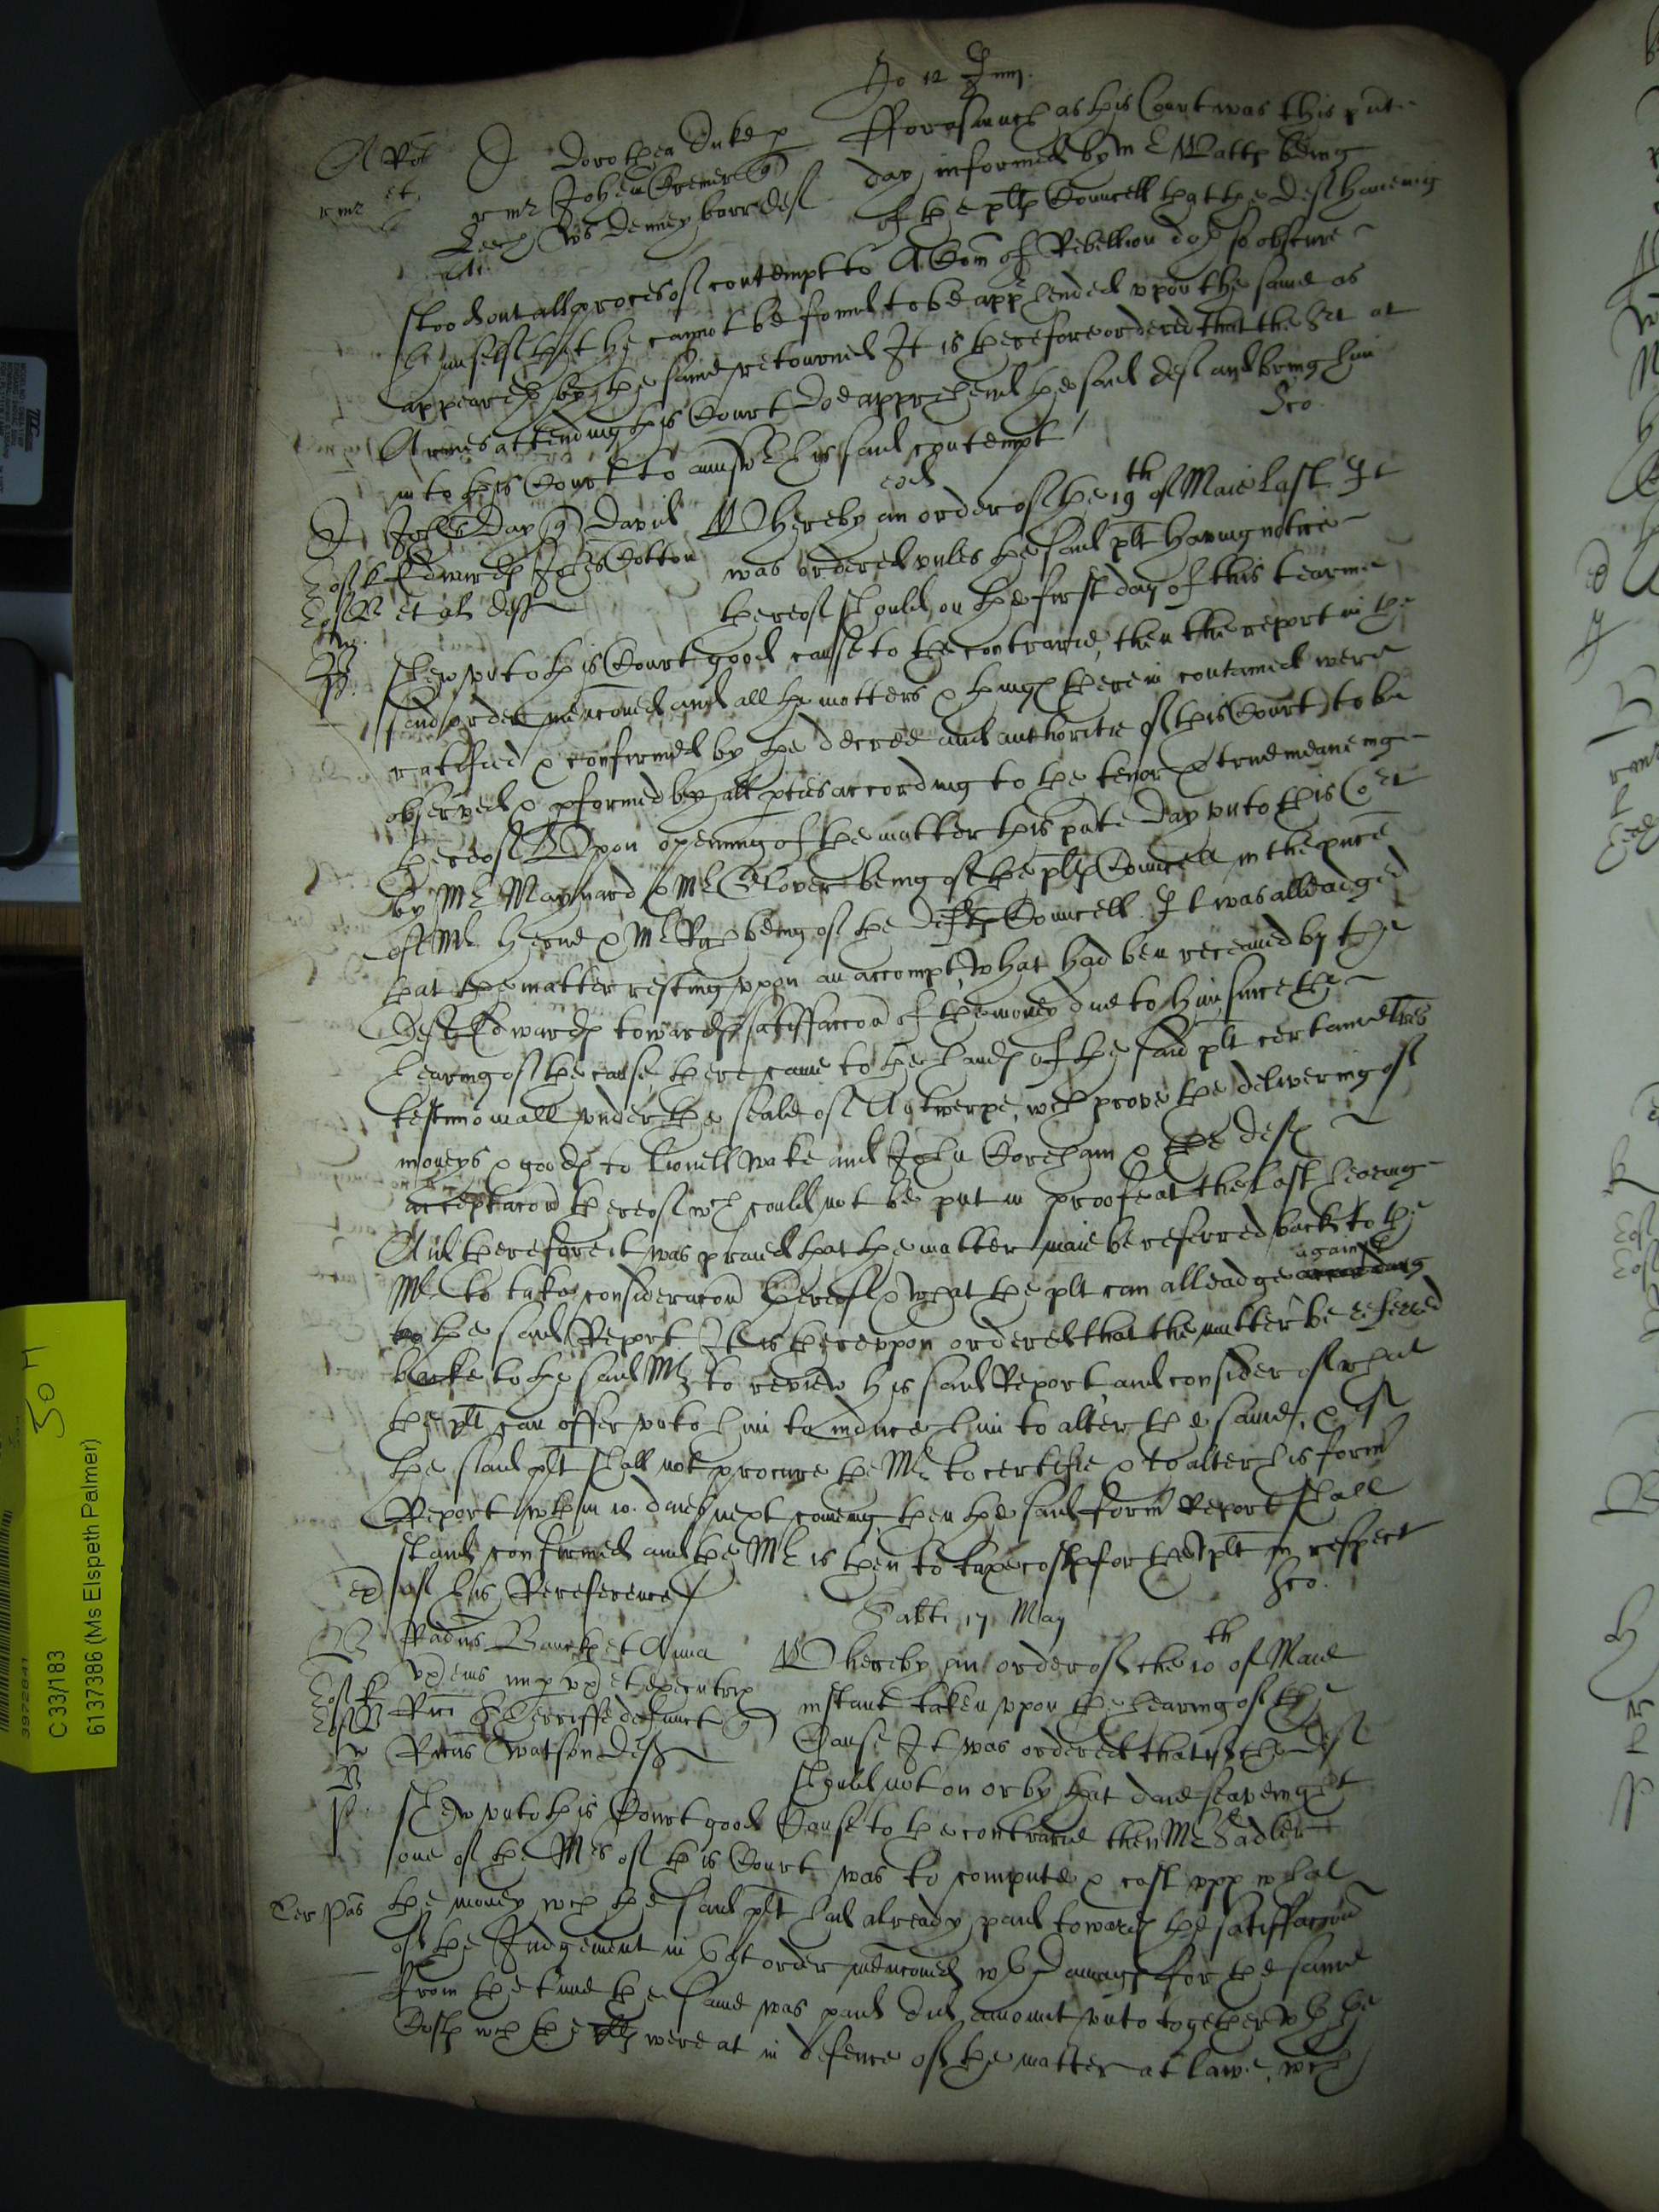 Jo 12 Junij
Dorothea Duke
John Cremer
Denney barr def
Fforasmuch as this Court was this pnte
day informed by mr Watts being
of the plts Councell that the def haveing
stood out all proces of contempt to A Com of Rebellion doth so obscure
himself that he cannot be found to be apphended upon the same as
appeareth by the same retourned It is therefore ordered that the Srt at
Armes attending this Court doe apprehend the said def and bring him
into this Court to answer his said contempt
Jones Day David
Edwards Cotton
et al deff
eod
Whereby an order of the 19th of Maie Last It
was ordered unles the said plt having notice
thereof should on the first day of this tearme
shew unto this Court good cause to the contrarie, then the report in the
said order menconed and all the matters & things therein contained were
ratified & confirmed by the decree and authoritie of this Court to be
observed & pformed by all pties according to the tenor & true meaneing
thereof Upon opening of the matter this pnte day unto this Cort
by Mr Maynard & Mr Glover being of the plts Councell in the pnce
of Mr Herne & Mr being of the Defts Councell It was alleadged
that the matter resting upon an accompt, what had ben receaved by the
def Edwards towards satisfaccon of the money due to him since the
hearing of the cause there came to the hands of the said plt certaine lres
testimoniall under the seale of Antwerpe, wch prove the delivering of
moneys & goods to Lionell Wake and John Corham & the defs
acceptacon thereof wch could not be put in proofe at the last heareing
And therefore it was praied that the matter maie be referred back to the
Mr to take consideracon thereof & what the plt can alleadge according against
to the said Report. It is thereupon ordered that the matter be referred
backe to the said Mr to review his said Report, and consider of what
the plt can offer unto him to induce him to alter the same, & if
the said plt shall not procure the Mr to certifie & to alter his form
Report wthin 10. daies next comeing then the said form Report shall
stand confirmed and the Mr is then to taxe costs for the plt in respect
of his Rereference
Sabti 17 May
Radus Banck et Anna
ux eius nup ux et executrix
Rici Sherriffe defunct
Ricus Watson def
Whereby an order of the 10th of Maie
instant taken upon the hearing of the
Cause It was ordered that if the def
should not on or by that daie seaveinght
shew unto this Court good Cause to the contrarie then Mr Sadler
one of the Mrs of this Court was to compute & cast upp what
Ter Pas
the money wch the said plt had already paid towards the satisfaccon
of the Judgement in that order menconed wth Damage for the same
from the time the same was paid did amount unto together wth the
Costs wch the plts were at in defence of the matter at lawe, wch
TTC
3972841
50 H
C 33/183
6137386 (Ms Elspeth Palmer)